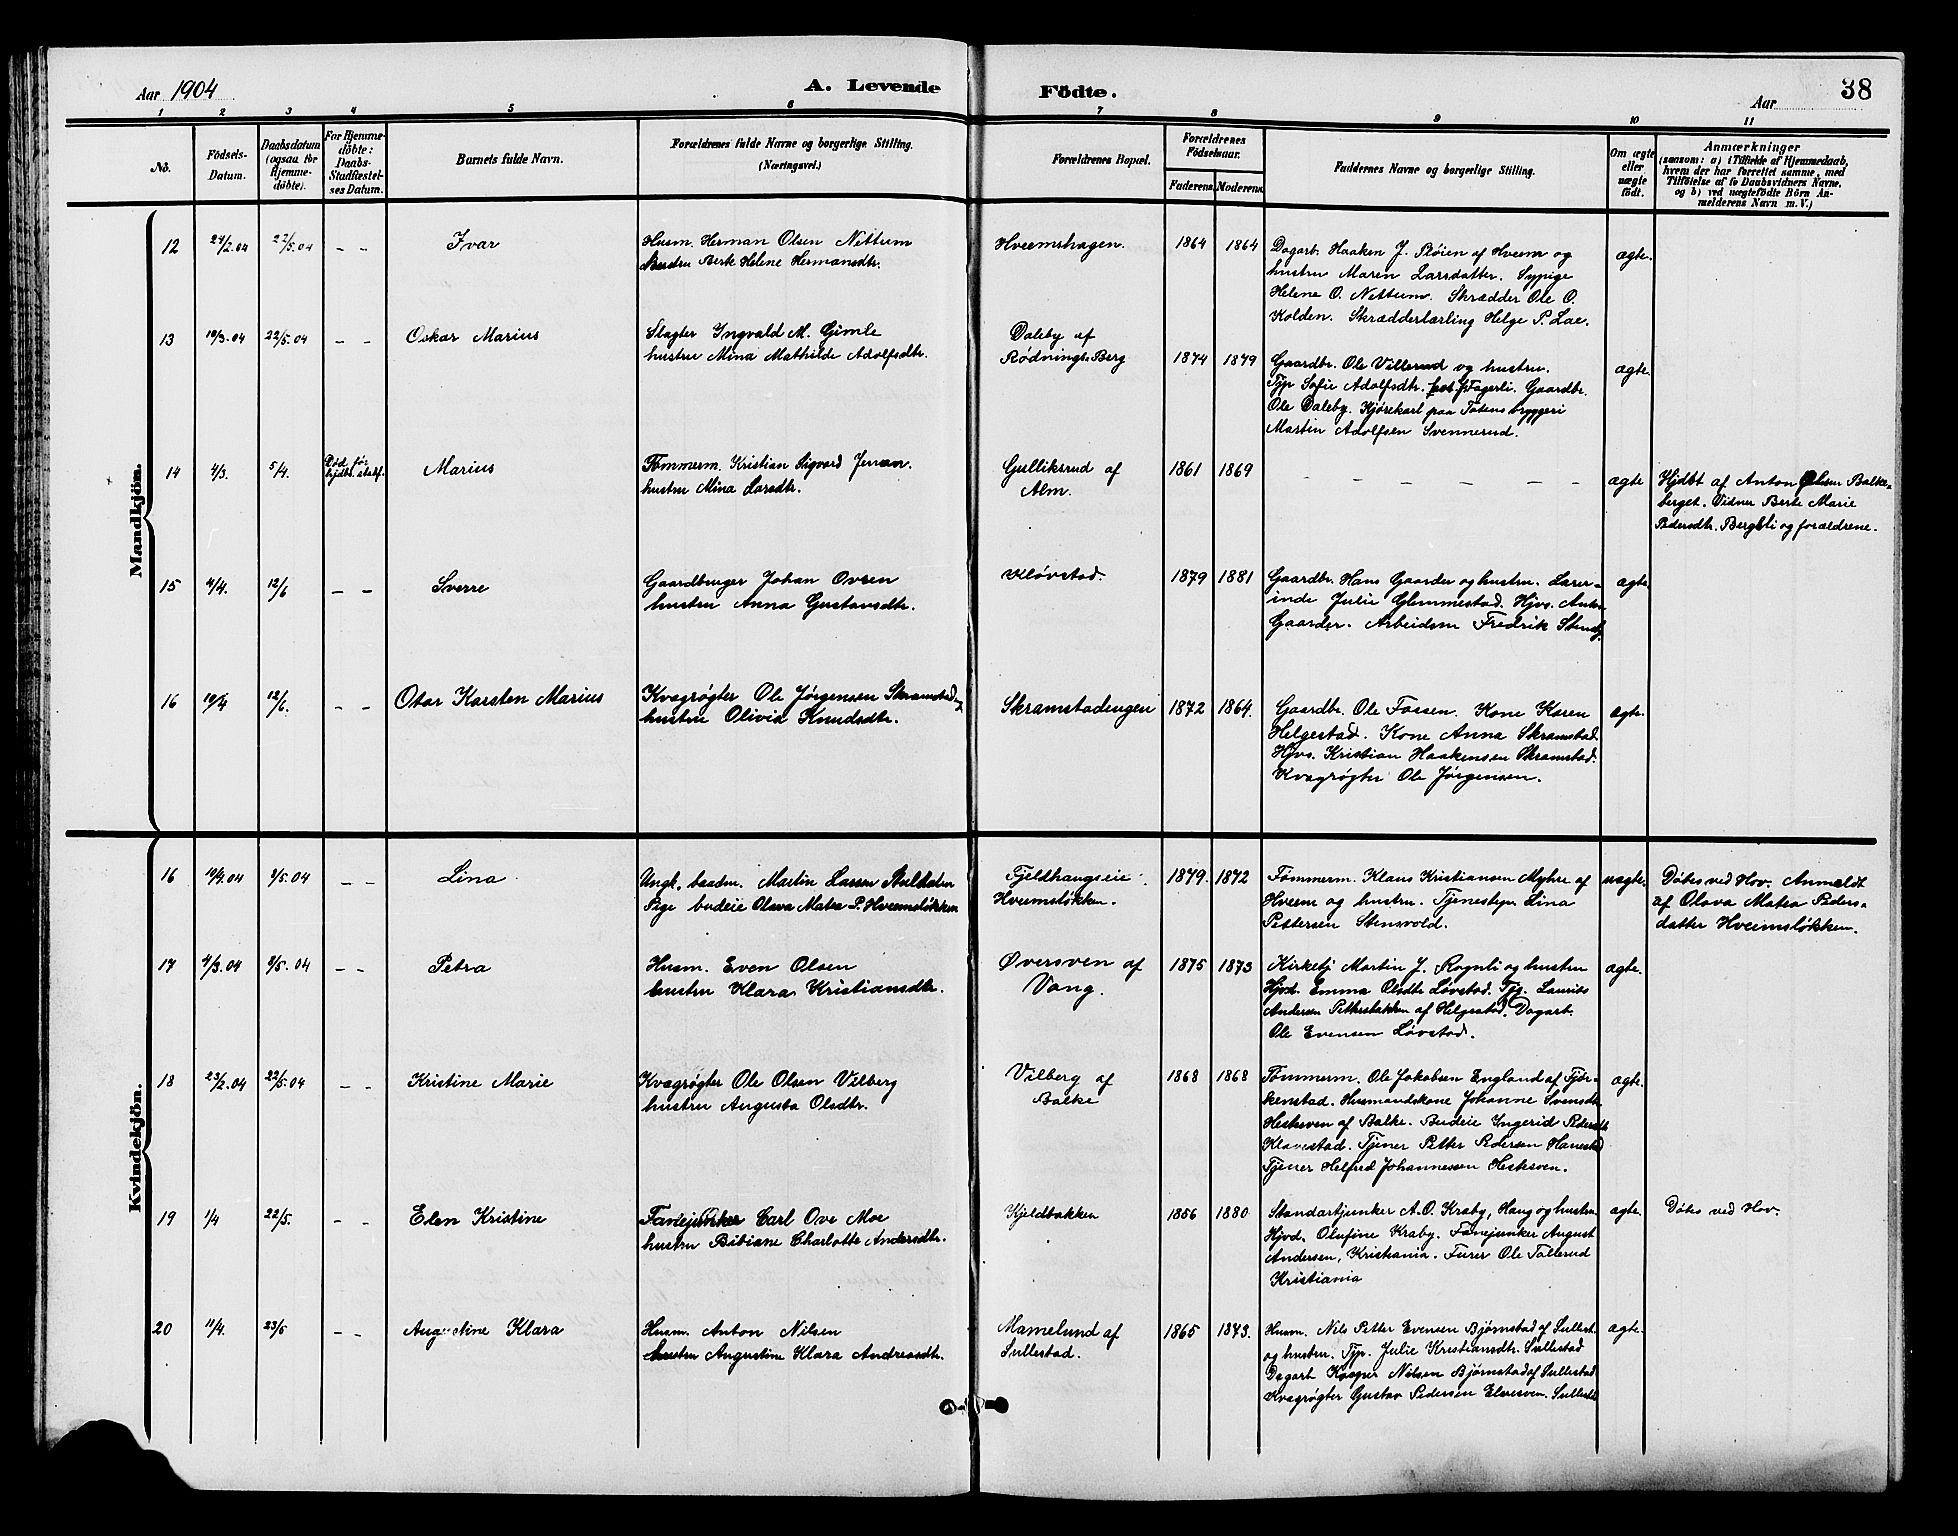 Aar 1904
A. Levende
Födte.
Aar
38
1 2 3 4 5 6 7 8 9 10 11
No.
Födsels-
Datum.
Daabsdatum
(ogsaa for
Hjemme-
döbte).
For Hjemme-
döbte:
Daabs-
Stadfæstel-
ses Datum.
Barnets fulde Navn.
Forældrenes fulde Navne og borgerlige Stilling.
(Næringsvei.)
Forældrenes Bopæl.
Forældrenes
Födselsaar.
Faderens. Moderens.
Faddernes Navne og borgerlige Stilling.
Om ægte
eller
uægte
födt.
Anmærkninger
(saasom: a) i Tilfælde af Hjemmedaab,
hvem der har forrettet samme, med
Tilföielse af to Daabsvidners Navne.
og b) ved uægtefödte Börn An-
melderens Navn m. V.)
Mandkjön.
12 24/2.04 22/5.04 - - Ivar
Husm. Herman Olsen Nettum
Hustru Berte Helene Hermansdtr.
Hveemshagen. 1864 1864
Dagarb. Haaken J. Røien af Hveem og
hustru Maren Larsdatter. Sypige
Helene O. Nettum. Skrædder Ole O.
Kolden. Skrædderlærling Helge P. Lae.
ægte.
13 10/3.04 22/5.04 - - Oskar Marius
Slagter Ingvald M. Gimle
hustru Mina Mathilde Adolfsdtr.
Daleby af
Rødnings-Berg
1874 1879
Gaardbr. Ole Villerud og hustru.
Typ Sofie Adolfsdtr. Fagerli. Gaardbr.
Ole Daleby. Kjørekarl paa Totens bryggeri
Martin Adolfsen Svennerud.
ægte.
14 4/3. 5/4. Død før
hjdbt. stadf. Marius
Tømmerm. Kristian Sigvard Jensen.
hustru Mina Larsdtr.
Gulliksrud af
Alm.
1861 1869 - - - - - - - ægte
Hjdbt af Anton Olsen Balke-
berget. Vidner Berte Marie
Pedersdtr. Bergsli og forældrene.
15 4/4. 12/6 - - Sverre
Gaardbruger Johan Ovsen
hustru Anna Gustavsdtr.
Kløvstad. 1879 1881
Gaardbr. Hans Gaarder og hustru. Lærer-
inde Julie Glemmestad. Hjvs. Anton
Gaarder. Arbeidsm Fredrik Stensby
ægte.
16 10/4 12/6. - - Otar Karsten Marius
Kvægrøgter Ole Jørgensen Skramstad
hustru Olivia Knudsdtr.
Skramstadengen 1872 1864.
Gaardbr. Ole Fossen. Kone Karen
Helgestad. Kone Anna Skramstad.
Hjvs. Kristian Haakensen Skramstad.
Kvægrøgter Ole Jørgensen.
ægte.
Kvindekjön.
16 10/4.04 8/5.04 - - Lina
Ungk. baadm. Martin Larsen
Pige budeie Olava Matea P. Hveemsløkken
Fjeldhaugseie
Hveemsløkken.
1879. 1872
Tømmerm. Klaus Kristiansen Myhre af
Hveem og hustru. Tjenestepi Lina
Pettersen Stensvold.
uægte.
Døbes ved Hov. Anmeldt
af Olava Matea Peders-
datter Hveemsløkken.
17 4/3.04 8/5.04 - - Petra
Husm. Even Olsen
hustru Klara Kristiansdtr.
Øversven af
Vang.
1875 1873
Kirketj Martin J. Rognli og hustru
Hjvd. Emma Olsdtr Løvstad. Tjg. Laurits
Andersen Petterbakken af Helgestad. Dagarb.
Ole Evensen Løvstad.
ægte.
18 23/2.04 22/5.04 - - Kristine Marie
Kvægrøgter Ole Olsen Vilberg
hustru Augusta Olsdtr.
Vilberg af
Balke
1868 1868
Tømmerm. Ole Jakobsen England af Fjør-
kenstad. Husmandskone Johanne Svensdtr
Heksven af Balke. Budeie Ingerid Pedersdtr
Klovestad. Tjener Petter Pedersen Hanestad
Tjener Helfred Johannessen Heksven.
ægte.
19 1/4 22/5. - - Elen Kristine
Fanejunker Carl Ove Moe
hustru Bibiane Charlotte Andersdtr.
Kjeldbakken 1856 1880
Standartjunker A.O. Kraby, Haug og hustru
Hjvd. Olufine Kraby. Fanejunker August
Andersen, Kristiania. Furer Ole Tallerud
Kristiania
ægte. Døbes ved Hov.
20 11/4. 23/5 - - Augustine Klara
Husm. Anton Nilsen
hustru Augustine Klara Andreasdtr.
Mamelund af
Sullestad.
1865 1873.
Husm. Nils Petter Evensen Bjørnstad af Sullest.
og hustru. Typ. Julie Kristiansdtr. Sullestad
Dagarb Kasper Nilsen Bjørnstad af Sullestad
Kvægrøgter Gustav Pedersen Elvesven. Sullestad
ægte.